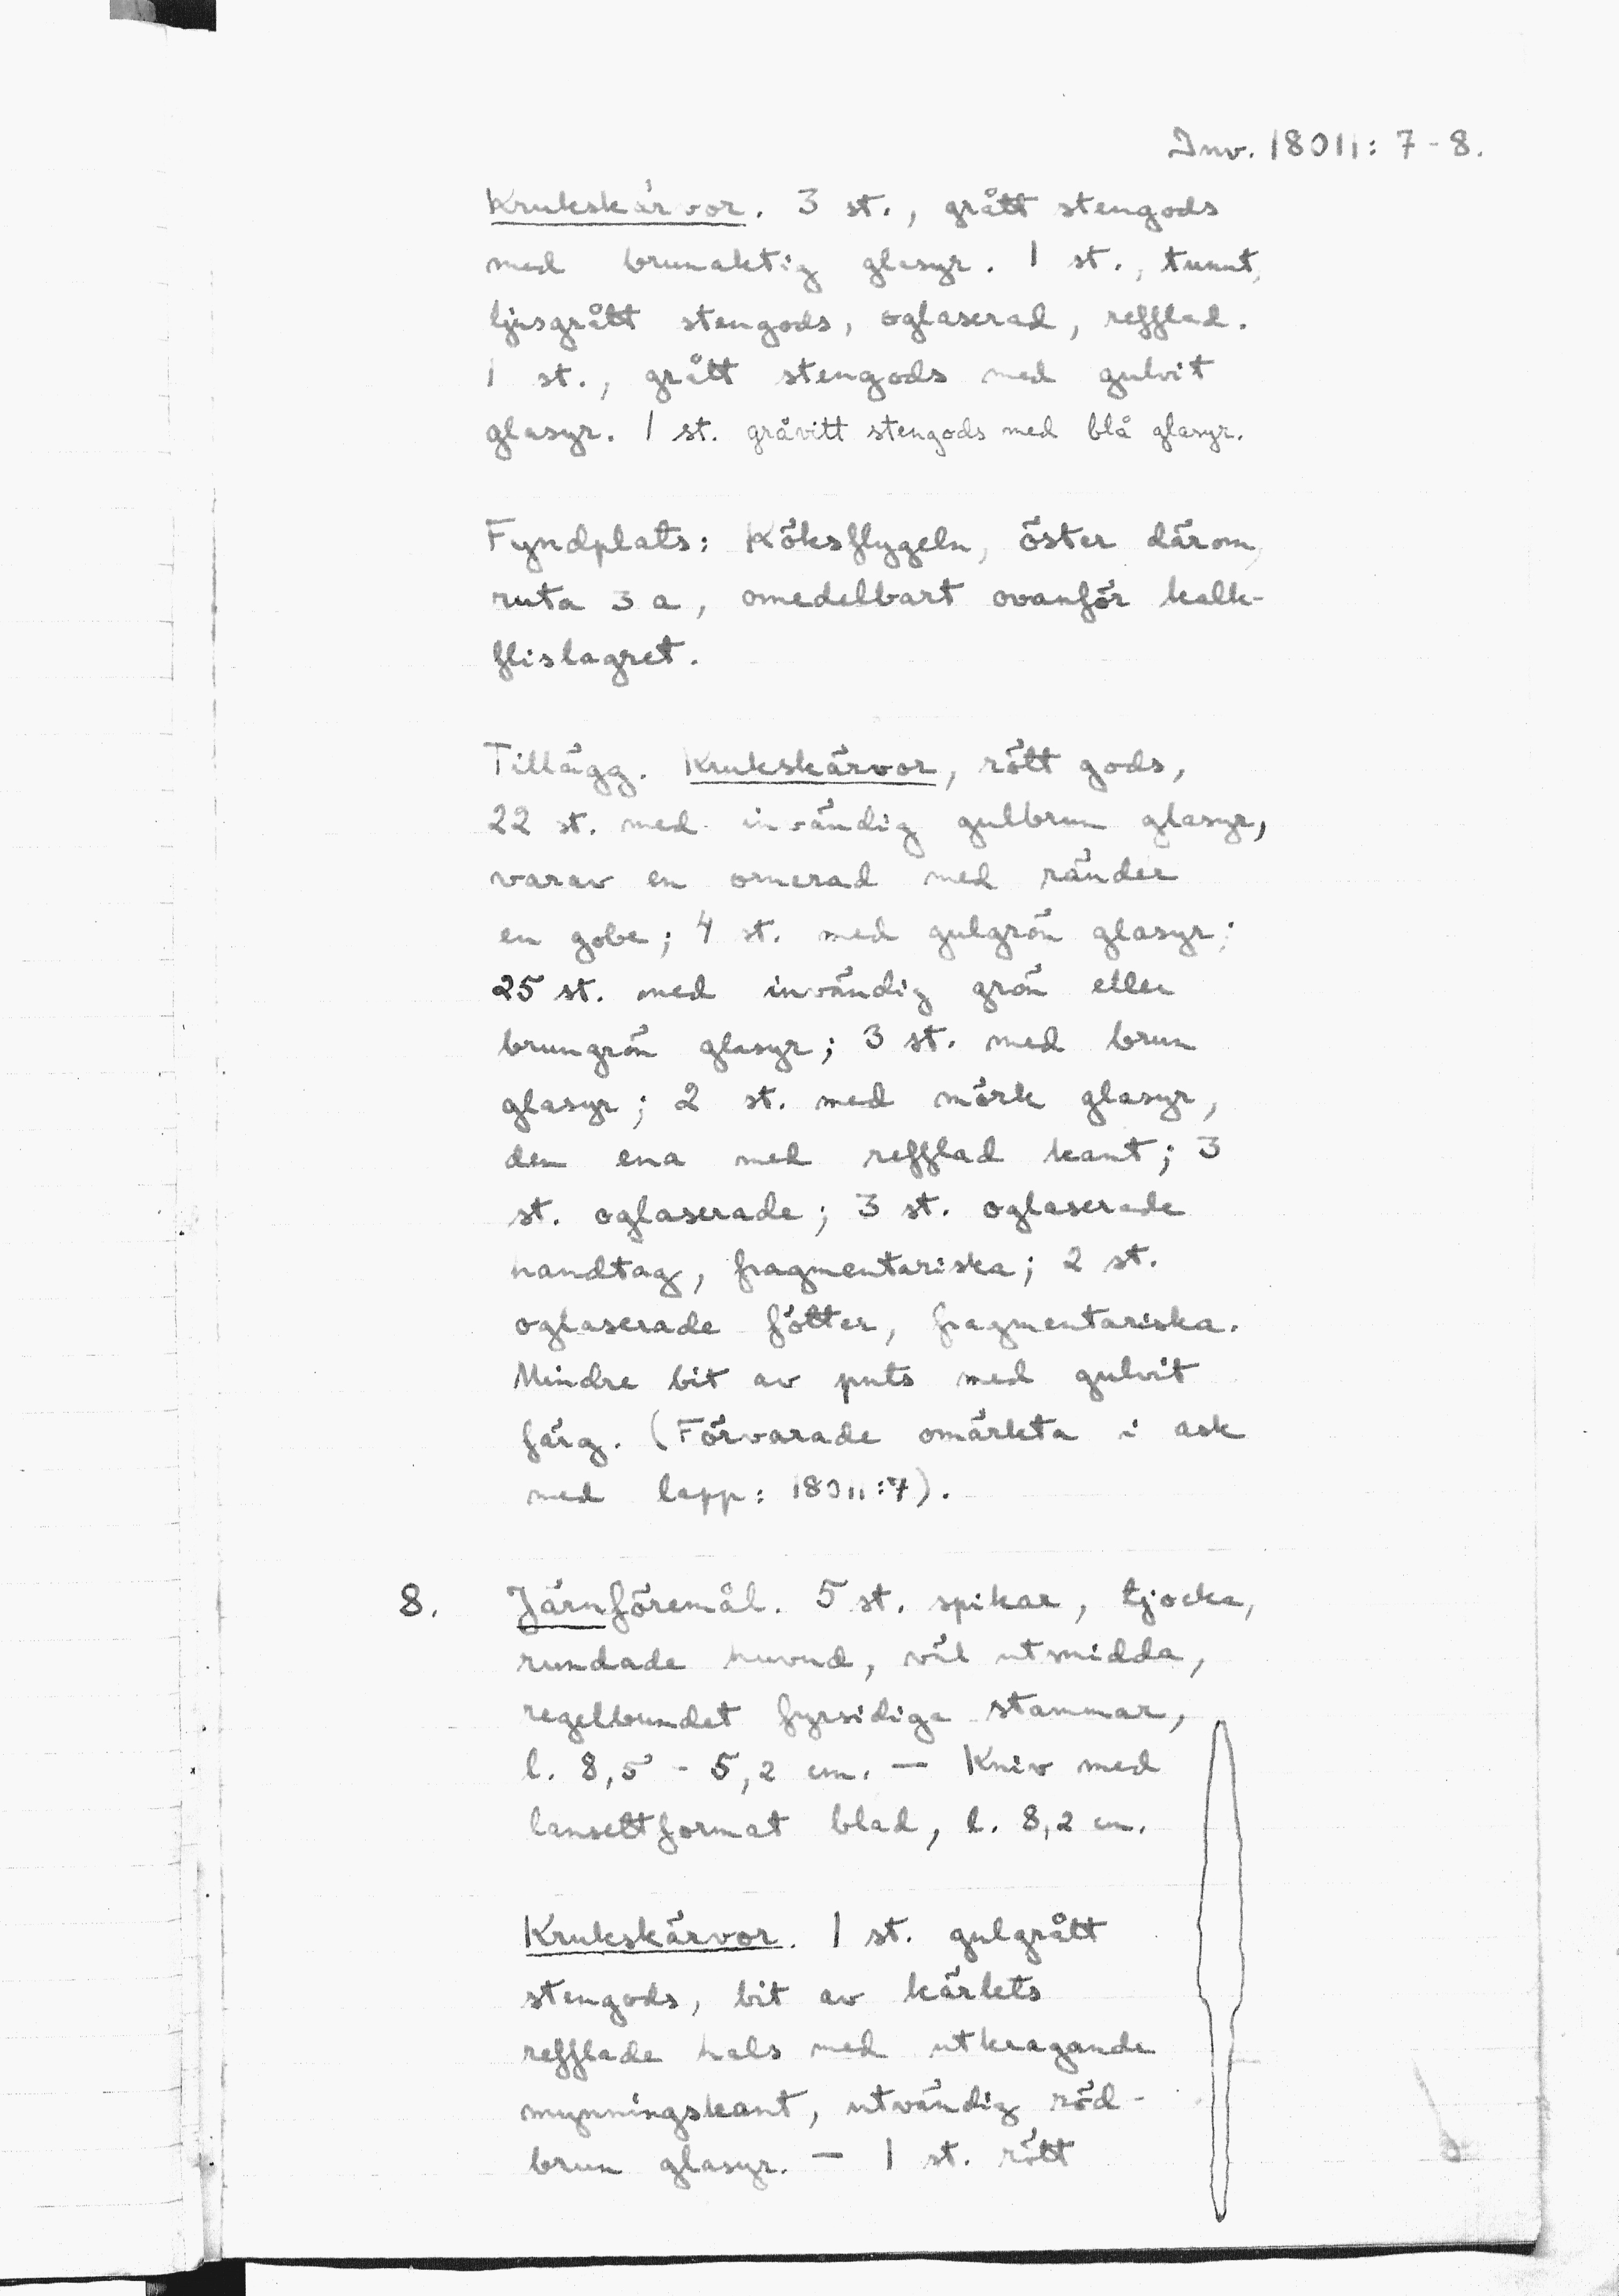 Inv. 18011: 7-8.
Krukskärvor. 3 st., grått stengods
med brunaktig glasyr. 1 st., tunnt,
ljusgrått stengods, oglaserad, refflad.
1 st., grått stengods med gulvit
glasyr. 1 st. gråvitt stengods med blå glasyr.
Fyndplats: Köksflygeln, öster därom,
ruta 3 a, omedelbart ovanför kalk-
flislagret.
Tillägg. Krukskärvor, rött gods,
22 st. med invändig gulbrun glasyr,
varav en ornerad med ränder
en gobe; 4 st. med gulgrön glasyr;
25 st. med invändig grön eller
brungrön glasyr; 3 st. med brun
glasyr; 2 st. med mörk glasyr,
den ena med refflad kant; 3
st. oglaserade; 3 st. oglaserade
handtag, fragmentariska; 2 st.
oglaserade fötter, fragmentariska.
Mindre bit av puts med gulvit
färg. (Förvarade omärkta i ask
med lapp: 18011:7).
8. Järnföremål. 5 st. spikar, tjocka,
rundade huvud, väl utsmidda,
regelbundet fyrsidiga stammar,
l. 8,5 - 5,2 cm. — Kniv med
lansettformat blad, l. 8,2 cm.
Krukskärvor. 1 st. gulgrått
stengods, bit av kärlets
refflade hals med utkragande
mynningskant, utvändig röd-
brun glasyr. — 1 st. rött